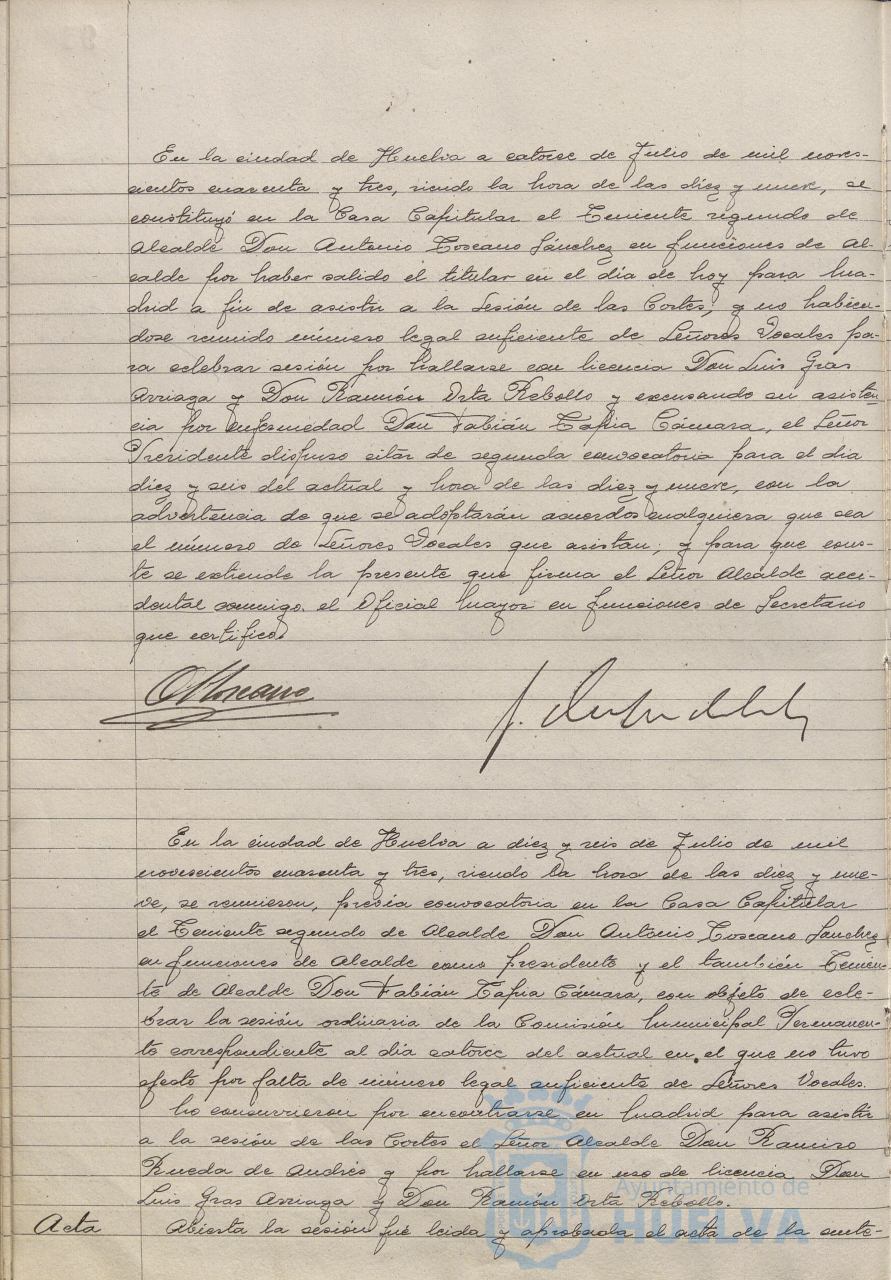 En la ciudad de Huelva a catorce de Julio de mil noves-
cientos cuarenta y tres, siendo la hora de las diez y nueve, se
constituyó en la Casa Capitular el Teniente segundo de
Alcalde Don Antonio Toscano Sánchez en funciones de Al-
calde por haber salido el titular en el día de hoy para Ma-
drid a fin de asistir a la Sesión de las Cortes, y no habién-
dose reunido número legal suficiente de Señores Vocales pa-
ra celebrar sesión por hallarse con licencia Don Luis Gras
Arriaga y Don Ramón Orta Rebollo y excusando su asisten-
cia por enfermedad Don Fabián Tapia Cámara, el Señor
Presidente dispuso citar de segunda convocatoria para el dia
diez y seis del actual y hora de las diez y nueve, con la
advertencia de que se adoptarán acuerdos cualquiera que sea
el número de Señores Vocales que asistan; y para que cons-
te se extiende la presente que firma el Señor Alcalde acci-
dental conmigo el Oficial Mayor en funciones de Secretario
que certifico.
A Toscano
En la ciudad de Huelva a diez y seis de Julio de mil
novescientos cuarenta y tres, siendo la hora de las diez y nue-
ve, se reunieron, previa convocatoria en la Casa Capitular
el Teniente segundo de Alcalde Don Antonio Toscano Sanchez
en funciones de Alcalde como presidente y el también Tenien-
te de Alcalde Don Fabián Tapia Cámara, con objeto de cele-
brar la sesión ordinaria de la Comisión Municipal Permanen-
te correspondiente al día catorce del actual en el que no tuvo
efecto por falta de número legal suficiente de Señores Vocales.
No concurrieron por encontrarse en Madrid para asistir
a la sesión de las Cortes el Señor Alcalde Don Ramiro
Rueda de Andrés y por hallarse en uso de licencia Don
Luis Gras Arriaga y Don Ramón Orta Rebollo.
Acta Abierta la sesión fué leida y aprobada el acta de la ante-
Ayuntamiento de
HUELVA